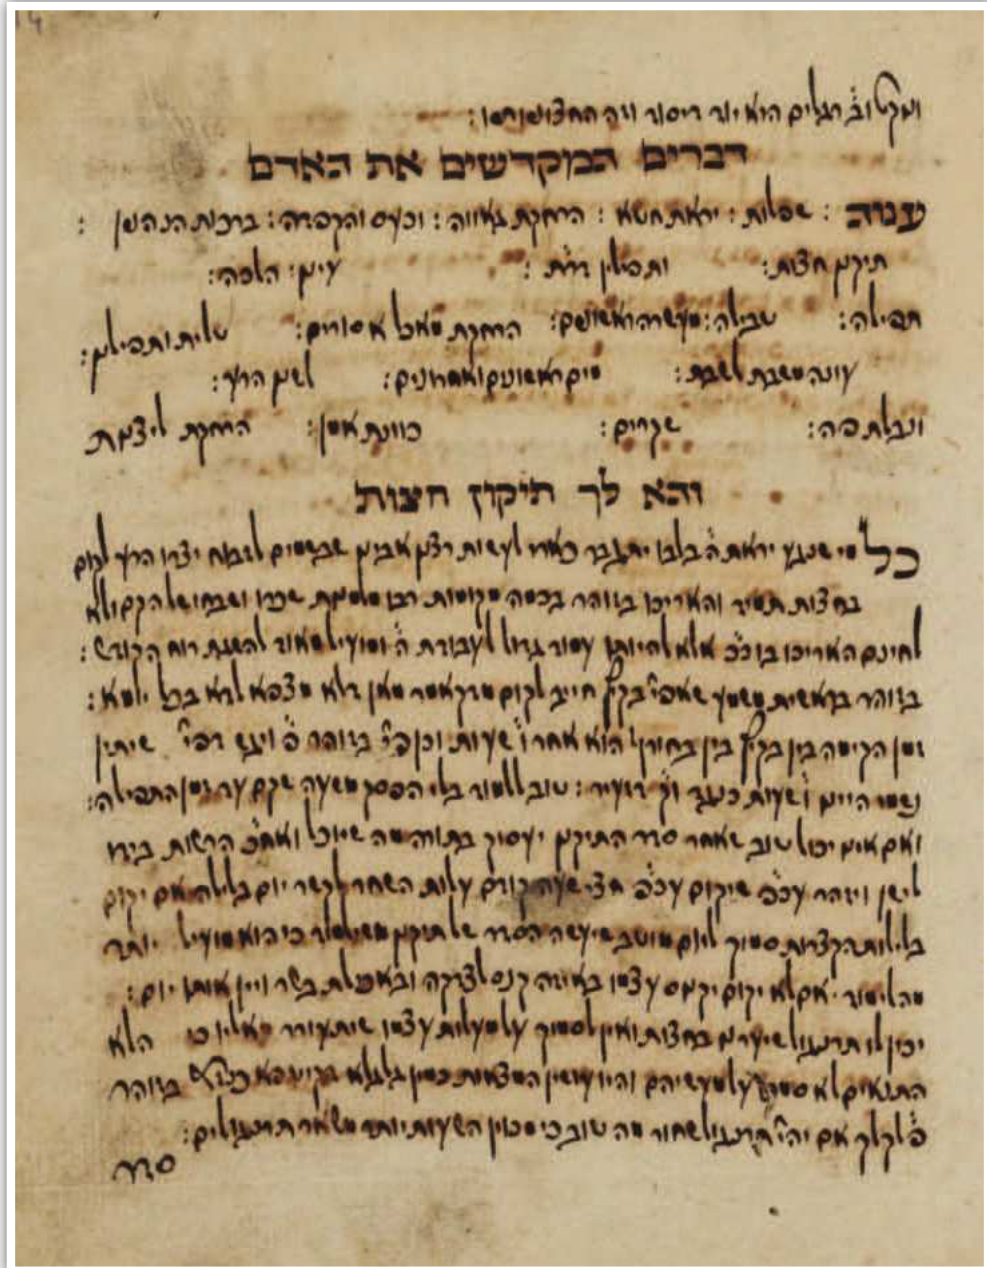 דברים המקדשים את האדם
ענוה : שפלות : יראת חטא : הרחקת גאווה : וכעס והקפדה : ברכות הנהנין :
תיקון חצות : ותפילין עיון הלכה :
תפילה : טבילה : מעשה ראשונים : הרחקת מאכל אסורים : טלית ותפילין :
עונה משבת לשבת : מים ראשונים ואחרונים : לשון הרע :
ונבלות פה : שקרים : כוונת אמן : הרחקת ליצנות
והא לך תיקון חצות
כל מי שנגע יראת ה' בלבו יתגבר כארי לעשות רצון אבינו שבשמים לזבוח יצרו הרע לקום
בחצות תמיד והאריכו בזוהר בכמה מקומות רבו מלמנות שכרו ושבחו של הקם ולא
לחינם האריכו בו כ"כ אלא להיותו עמוד גדול לעבודת ה' ומועיל מאוד להשגת רוח הקודש :
בזוהר בראשית משמע שאפי' בקיץ חייב לקום מדקאמר מאן דלא
זמן הקימה בין בקיץ בין בחורף הוא אחר ו' שעות וכן פי' בזוהר פ' ויגש דפי' שיתין
נשמי היינו ו' שעות : טוב ללמוד בלי הפסק משעה שקם עד זמן התפילה :
ואם אינו יכול טוב שאחר סדר התיקון יעסוק בתורה מה שיוכל ואח"כ הרשות בידו
לישן ויזהר עכ"פ שיקום עכ"פ חצי שעה קודם עלות השחר לקשר יום בלילה אם יקום
בלילות הקצרות סמוך ליום מוטב שיעשה הסדר של תיקון משילמוד כי הוא מועיל יותר
מהלימוד . אם לא יקום יקנוס עצמו באיזה קנס לצדקה ובאכילת בשר ויין אותו יום :
יכין לו תרנגול שיעירנו בחצות ואין לסמוך על מעלות עצמו שיתעורר מאליו כי הלא
התנאים לא סמכו על מעשיהם והיו עושין המצאות כמין גלגלא בזוהר
פ' לך לך אם יהי' תרנגול שחור מה טוב כי מכוין השעות יותר משאר תרנגולים :
סדר